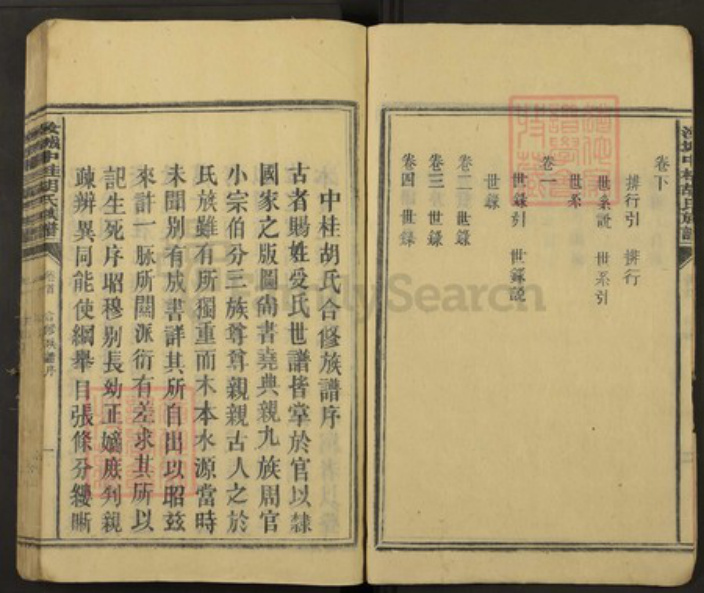 卷下
排行引 排行
世系説 世系引
世系
卷一
世錄引 世錄説
世錄
卷二世錄
卷三世錄
卷四世錄
中桂胡氏合修族譜序
古者賜姓受氏世譜皆掌於官以隸
國家之版圖尚書堯典親九族周官
小宗伯分三族尊尊親親古人之於
氏族雖有所獨重而木本水源當時
未聞別有成書詳其所自出以昭茲
來許一脉所關派衍有差求其所以
記生死序昭穆別長幼正嫡庶判親
疎辨異同能使綱舉目張條分縷晰
中桂胡氏族譜
卷首 合修族譜序 一
FamilySearch